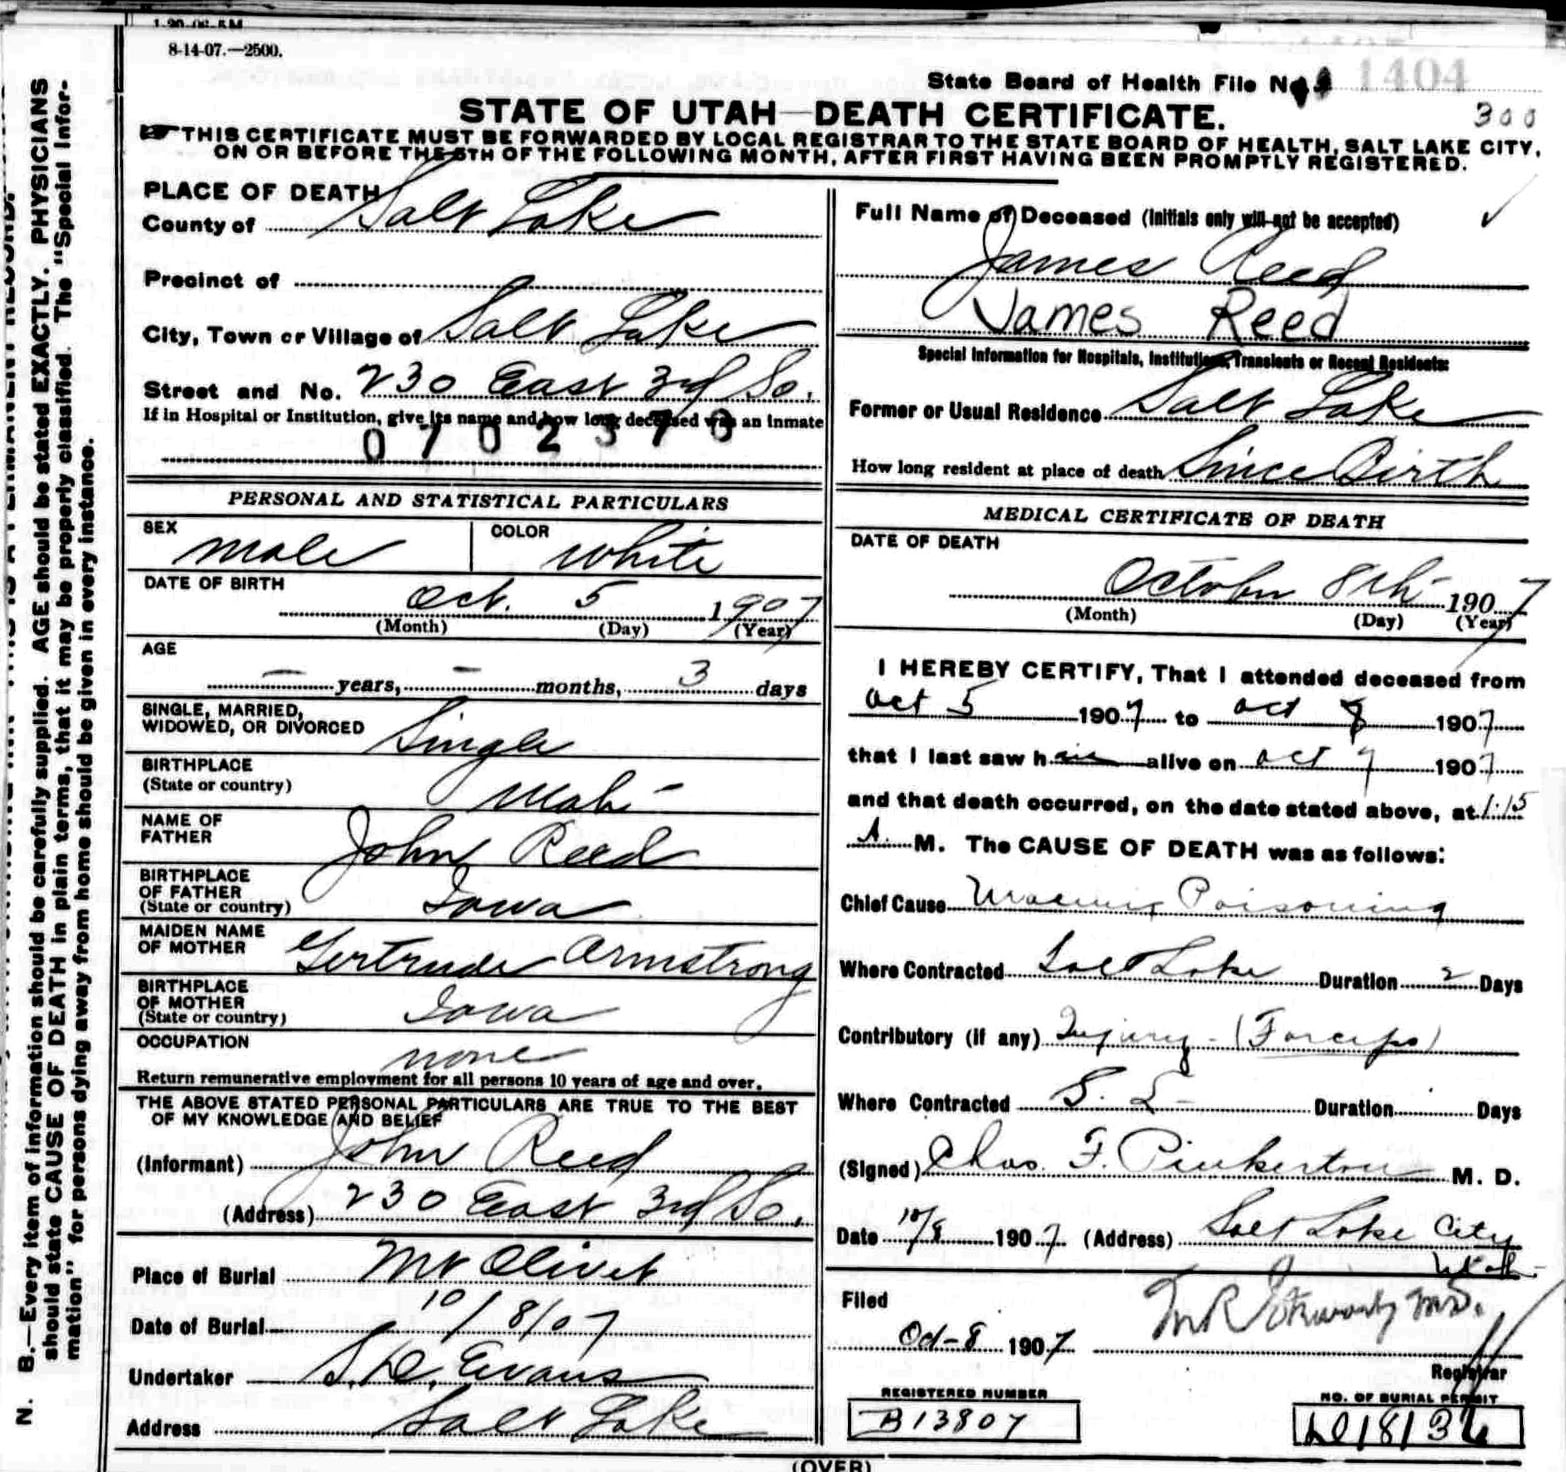 8-14-07.—2500.
State Board of Health File No. 1404
STATE OF UTAH—DEATH CERTIFICATE.
300
THIS CERTIFICATE MUST BE FORWARDED BY LOCAL REGISTRAR TO THE STATE BOARD OF HEALTH, SALT LAKE CITY,
ON OR BEFORE THE 5TH OF THE FOLLOWING MONTH, AFTER FIRST HAVING BEEN PROMPTLY REGISTERED.
PLACE OF DEATH
County of Salt Lake
Precinct of
City, Town or Village of Salt Lake
Street and No. 230 East 3rd So.
If in Hospital or Institution, give its name and how long deceased was an inmate
0702370
PERSONAL AND STATISTICAL PARTICULARS
SEX male COLOR white
DATE OF BIRTH
Oct. 5 1907
(Month) (Day) (Year)
AGE
— years, — months, 3 days
SINGLE, MARRIED,
WIDOWED, OR DIVORCED Single
BIRTHPLACE
(State or country) Utah
NAME OF
FATHER John Reed
BIRTHPLACE
OF FATHER
(State or country) Iowa
MAIDEN NAME
OF MOTHER Gertrude Armstrong
BIRTHPLACE
OF MOTHER
(State or country) Iowa
OCCUPATION none
Return remunerative employment for all persons 10 years of age and over.
THE ABOVE STATED PERSONAL PARTICULARS ARE TRUE TO THE BEST
OF MY KNOWLEDGE AND BELIEF
(Informant) John Reed
(Address) 230 East 3rd So.
Place of Burial Mt Olivet
Date of Burial 10/8/07
Undertaker S. D. Evans
Address Salt Lake
Full Name of Deceased (Initials only will not be accepted)
James Reed
James Reed
Special Information for Hospitals, Institutions, Transients or Recent Residents:
Former or Usual Residence Salt Lake
How long resident at place of death Since Birth
MEDICAL CERTIFICATE OF DEATH
DATE OF DEATH
October 8th 1907
(Month) (Day) (Year)
I HEREBY CERTIFY, That I attended deceased from
Oct 5 1907 to Oct 8 1907
that I last saw him alive on Oct 7 1907
and that death occurred, on the date stated above, at 1:15
A. M. The CAUSE OF DEATH was as follows:
Chief Cause Uraemic Poisoning
Where Contracted Salt Lake Duration 2 Days
Contributory (if any) Injury - (Forceps)
Where Contracted S. L Duration Days
(Signed) Chas. F. Pinkerton M. D.
Date 10/8 1907 (Address) Salt Lake City
Utah
Filed
Oct-8 1907
M R M.D.
Registrar
REGISTERED NUMBER
B13807
NO. OF BURIAL PERMIT
N. B.—Every item of information should be carefully supplied. AGE should be stated EXACTLY. PHYSICIANS
should state CAUSE OF DEATH in plain terms, that it may be properly classified. The "Special Infor-
mation" for persons dying away from home should be given in every instance.
(OVER)